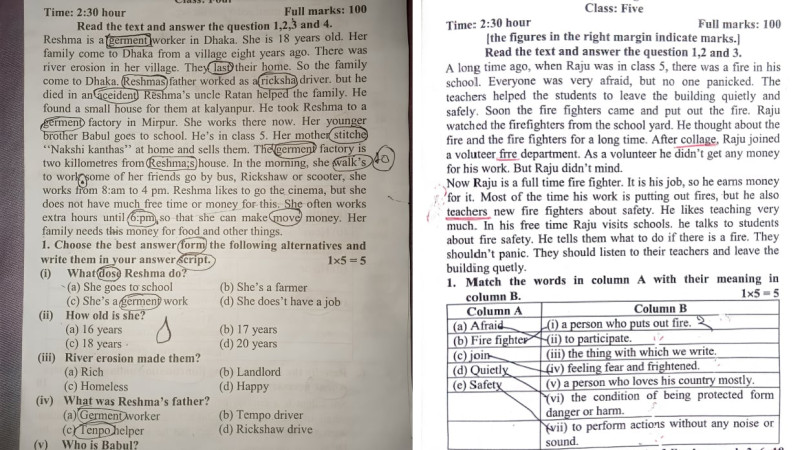 Class: Four
Time: 2:30 hour Full marks: 100
Read the text and answer the question 1,2,3 and 4.
Reshma is a germent worker in Dhaka. She is 18 years old. Her
family come to Dhaka from a village eight years ago. There was
river erosion in her village. They last their home. So the family
come to Dhaka. Reshmas father worked as a ricksha driver. but he
died in an aceident Reshma's uncle Ratan helped the family. He
found a small house for them at kalyanpur. He took Reshma to a
germent factory in Mirpur. She works there now. Her younger
brother Babul goes to school. He's in class 5. Her mother stitche
"Nakshi kanthas" at home and sells them. The germent factory is
two killometres from Reshma;s house. In the morning, she walk's
to work some of her friends go by bus, Rickshaw or scooter, she
works from 8:am to 4 pm. Reshma likes to go the cinema, but she
does not have much free time or money for this. She often works
extra hours until 6:pm, so that she can make move money. Her
family needs this money for food and other things.
1. Choose the best answer form the following alternatives and
write them in your answer script. 1×5 = 5
(i) What dose Reshma do?
(a) She goes to school (b) She's a farmer
(c) She's a germent work (d) She does't have a job
(ii) How old is she?
(a) 16 years (b) 17 years
(c) 18 years (d) 20 years
(iii) River erosion made them?
(a) Rich (b) Landlord
(c) Homeless (d) Happy
(iv) What was Reshma's father?
(a) Germent worker (b) Tempo driver
(c) Tenpo helper (d) Rickshaw drive
(v) Who is Babul?
Class: Five
Time: 2:30 hour Full marks: 100
[the figures in the right margin indicate marks.]
Read the text and answer the question 1,2 and 3.
A long time ago, when Raju was in class 5, there was a fire in his
school. Everyone was very afraid, but no one panicked. The
teachers helped the students to leave the building quietly and
safely. Soon the fire fighters came and put out the fire. Raju
watched the firefighters from the school yard. He thought about the
fire and the fire fighters for a long time. After collage, Raju joined
a voluteer fire department. As a volunteer he didn't get any money
for his work. But Raju didn't mind.
Now Raju is a full time fire fighter. It is his job, so he earns money
for it. Most of the time his work is putting out fires, but he also
teachers new fire fighters about safety. He likes teaching very
much. In his free time Raju visits schools. he talks to students
about fire safety. He tells them what to do if there is a fire. They
shouldn't panic. They should listen to their teachers and leave the
building quetly.
1. Match the words in column A with their meaning in
column B. 1×5 = 5
Column A Column B
(a) Afraid (i) a person who puts out fire.
(b) Fire fighter (ii) to participate.
(c) join (iii) the thing with which we write.
(d) Quietly (iv) feeling fear and frightened.
(e) Safety (v) a person who loves his country mostly.
(vi) the condition of being protected form
danger or harm.
(vii) to perform actions without any noise or
sound.